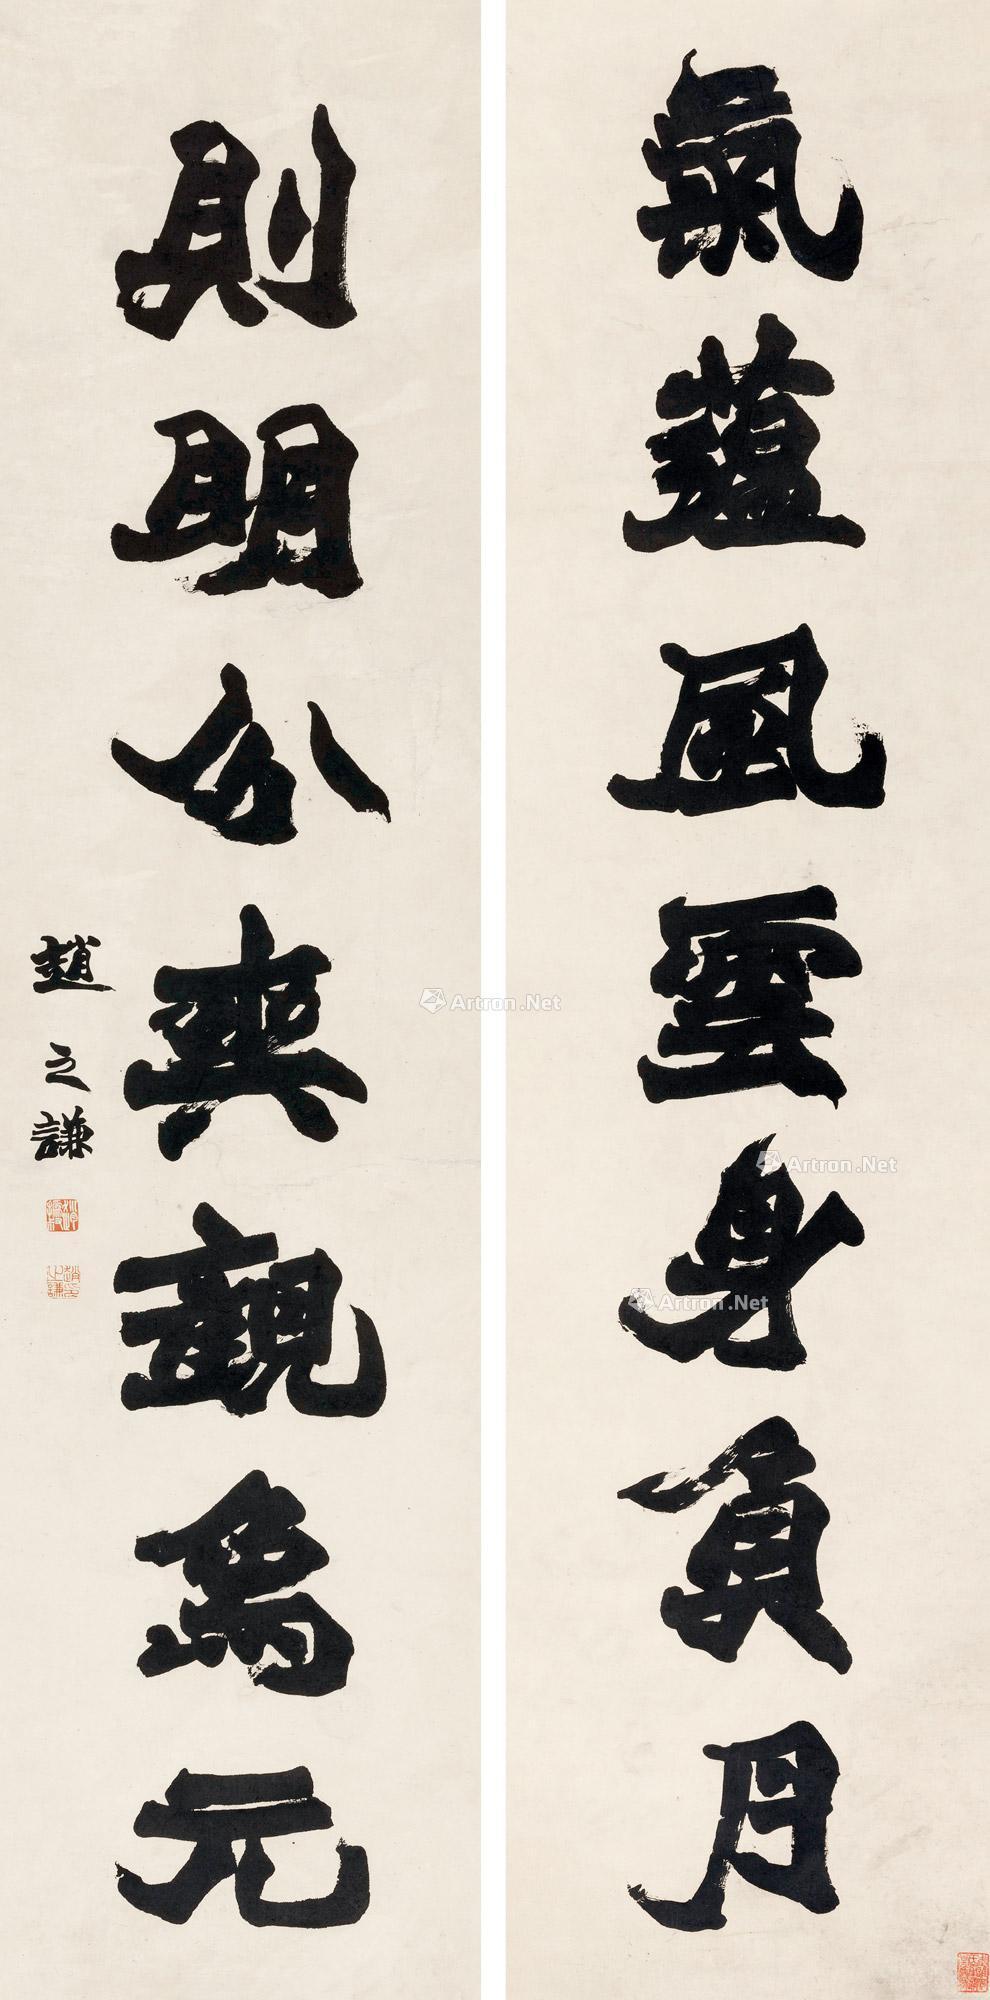 氣蘊風雲身負月
則明公爽觀為元
趙之謙
Artron.Net
Artron.Net
Artron.Net